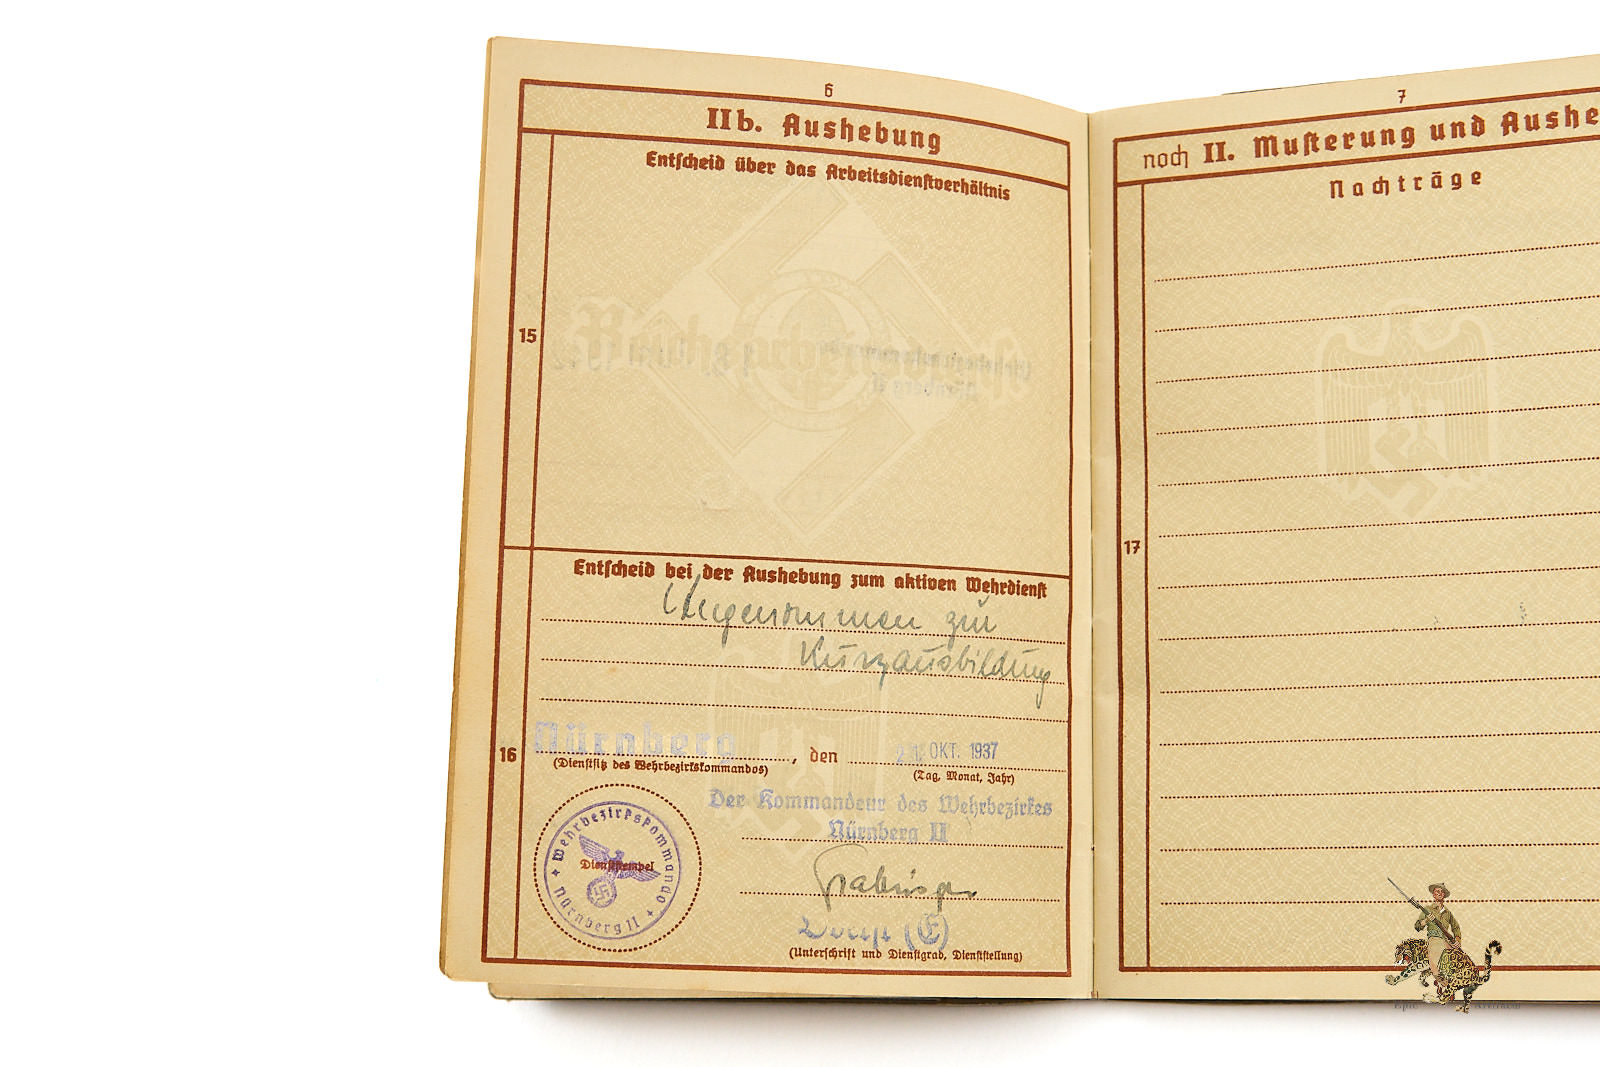 6
IIb. Aushebung
Entscheid über das Arbeitsdienstverhältnis
15
Entscheid bei der Aushebung zum aktiven Wehrdienst
Angenommen zur
Kurzausbildung
16
Nürnberg, den OKT. 1937
(Dienstsitz des Wehrbezirkskommandos) (Tag, Monat, Jahr)
Der Kommandeur des Wehrbezirkes
Nürnberg II
Wehrbezirkskommando
Dienststempel
Nürnberg II
(Unterschrift und Dienstgrad, Dienststellung)
7
noch II. Musterung und Aushe
Nachträge
17